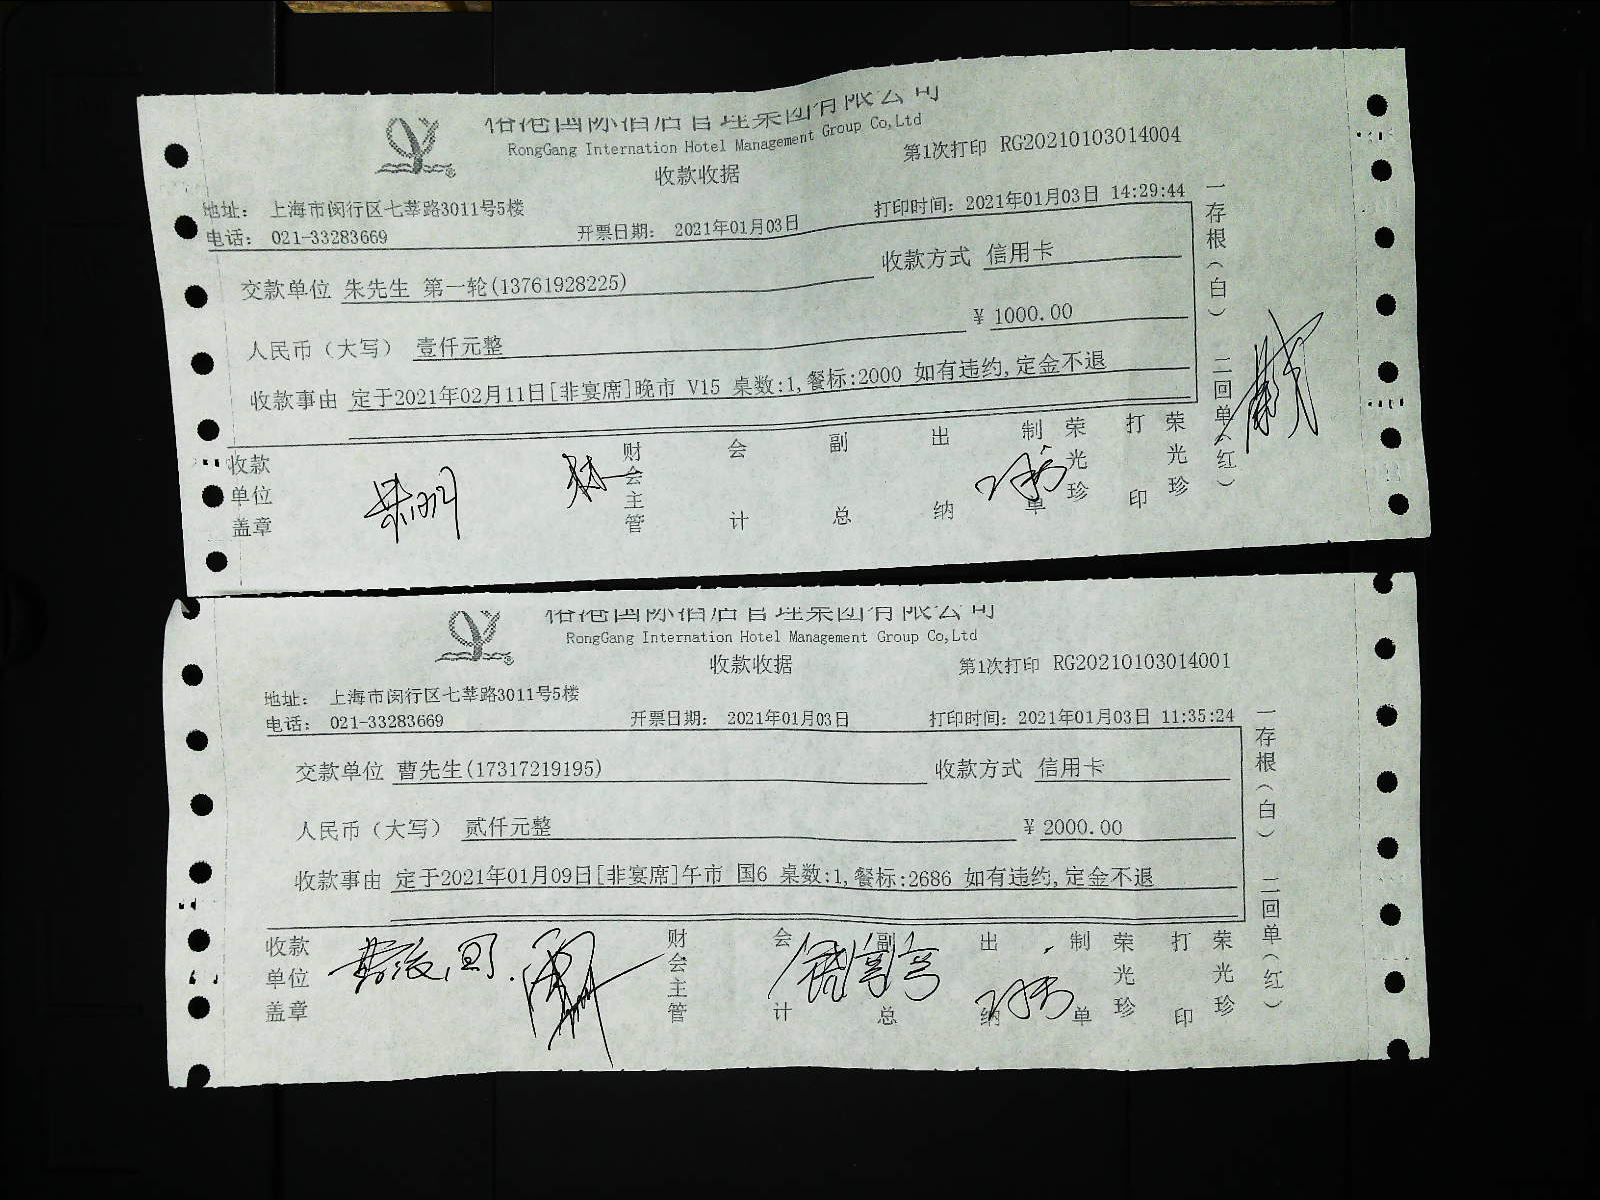 裕港国际酒店管理集团有限公司
RongGang Internation Hotel Management Group Co,Ltd
收款收据
第1次打印 RG20210103014004
地址： 上海市闵行区七莘路3011号5楼
电话： 021-33283669
开票日期： 2021年01月03日
打印时间：2021年01月03日 14:29:44
交款单位 朱先生 第一轮(13761928225)
收款方式 信用卡
人民币（大写） 壹仟元整
￥ 1000.00
收款事由 定于2021年02月11日[非宴席]晚市 V15 桌数:1,餐标:2000 如有违约,定金不退
收款单位盖章
财会主管
会计
副总
出纳
制单
荣光珍
打印
荣光珍
一存根（白） 二回单（红）
裕港国际酒店管理集团有限公司
RongGang Internation Hotel Management Group Co,Ltd
收款收据
第1次打印 RG20210103014001
地址： 上海市闵行区七莘路3011号5楼
电话： 021-33283669
开票日期： 2021年01月03日
打印时间：2021年01月03日 11:35:24
交款单位 曹先生(17317219195)
收款方式 信用卡
人民币（大写） 贰仟元整
￥ 2000.00
收款事由 定于2021年01月09日[非宴席]午市 国6 桌数:1,餐标:2686 如有违约,定金不退
收款单位盖章
财会主管
会计
副总
出纳
制单
荣光珍
打印
荣光珍
一存根（白） 二回单（红）